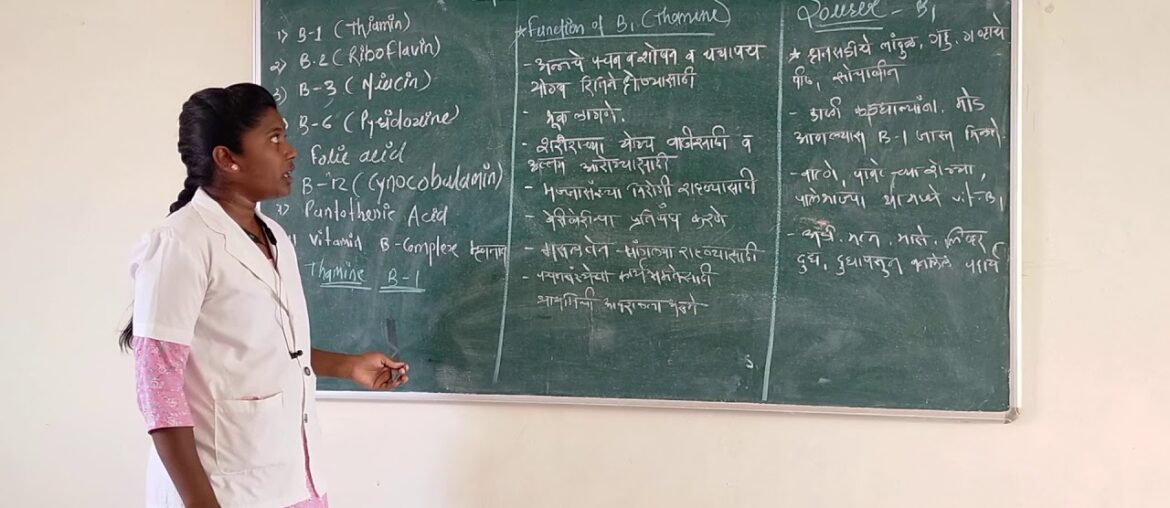 1) B-1 (Thiamin)
2) B-2 (Riboflavin)
B-3 (Niacin)
B-6 (Pyridoxine)
Folic acid
B-12 (Cynocobalamin)
Pantothenic Acid
Vitamin B-Complex म्हणतात
Thamine B-1
* Function of B1 (Thamine)
- अन्नाचे पचन व शोषन व चयापचय
योग्य रितिने होण्यासाठी
- भूक लागणे.
- शरीराच्या योग्य वाढीसाठी व
आरोग्यासाठी
- मज्जासंस्था निरोगी राहण्यासाठी
- बेरीबेरीचा प्रतिबंध करणे
- चांगल्या राहण्यासाठी
- पचनसंस्थेच्या कार्यक्षमतेसाठी
B1
* हातसडीचे तांदुळ, गहु, गव्हाचे
पीठ, सोयाबीन
- डाळी कडधान्यांना मोड
आणल्यास B-1 जास्त मिळते.
पालेभाज्या यामध्ये vit-B1
- अंडी, मटन, मासे, लिव्हर
दुध, दुधापासुन बनलेले पदार्थ